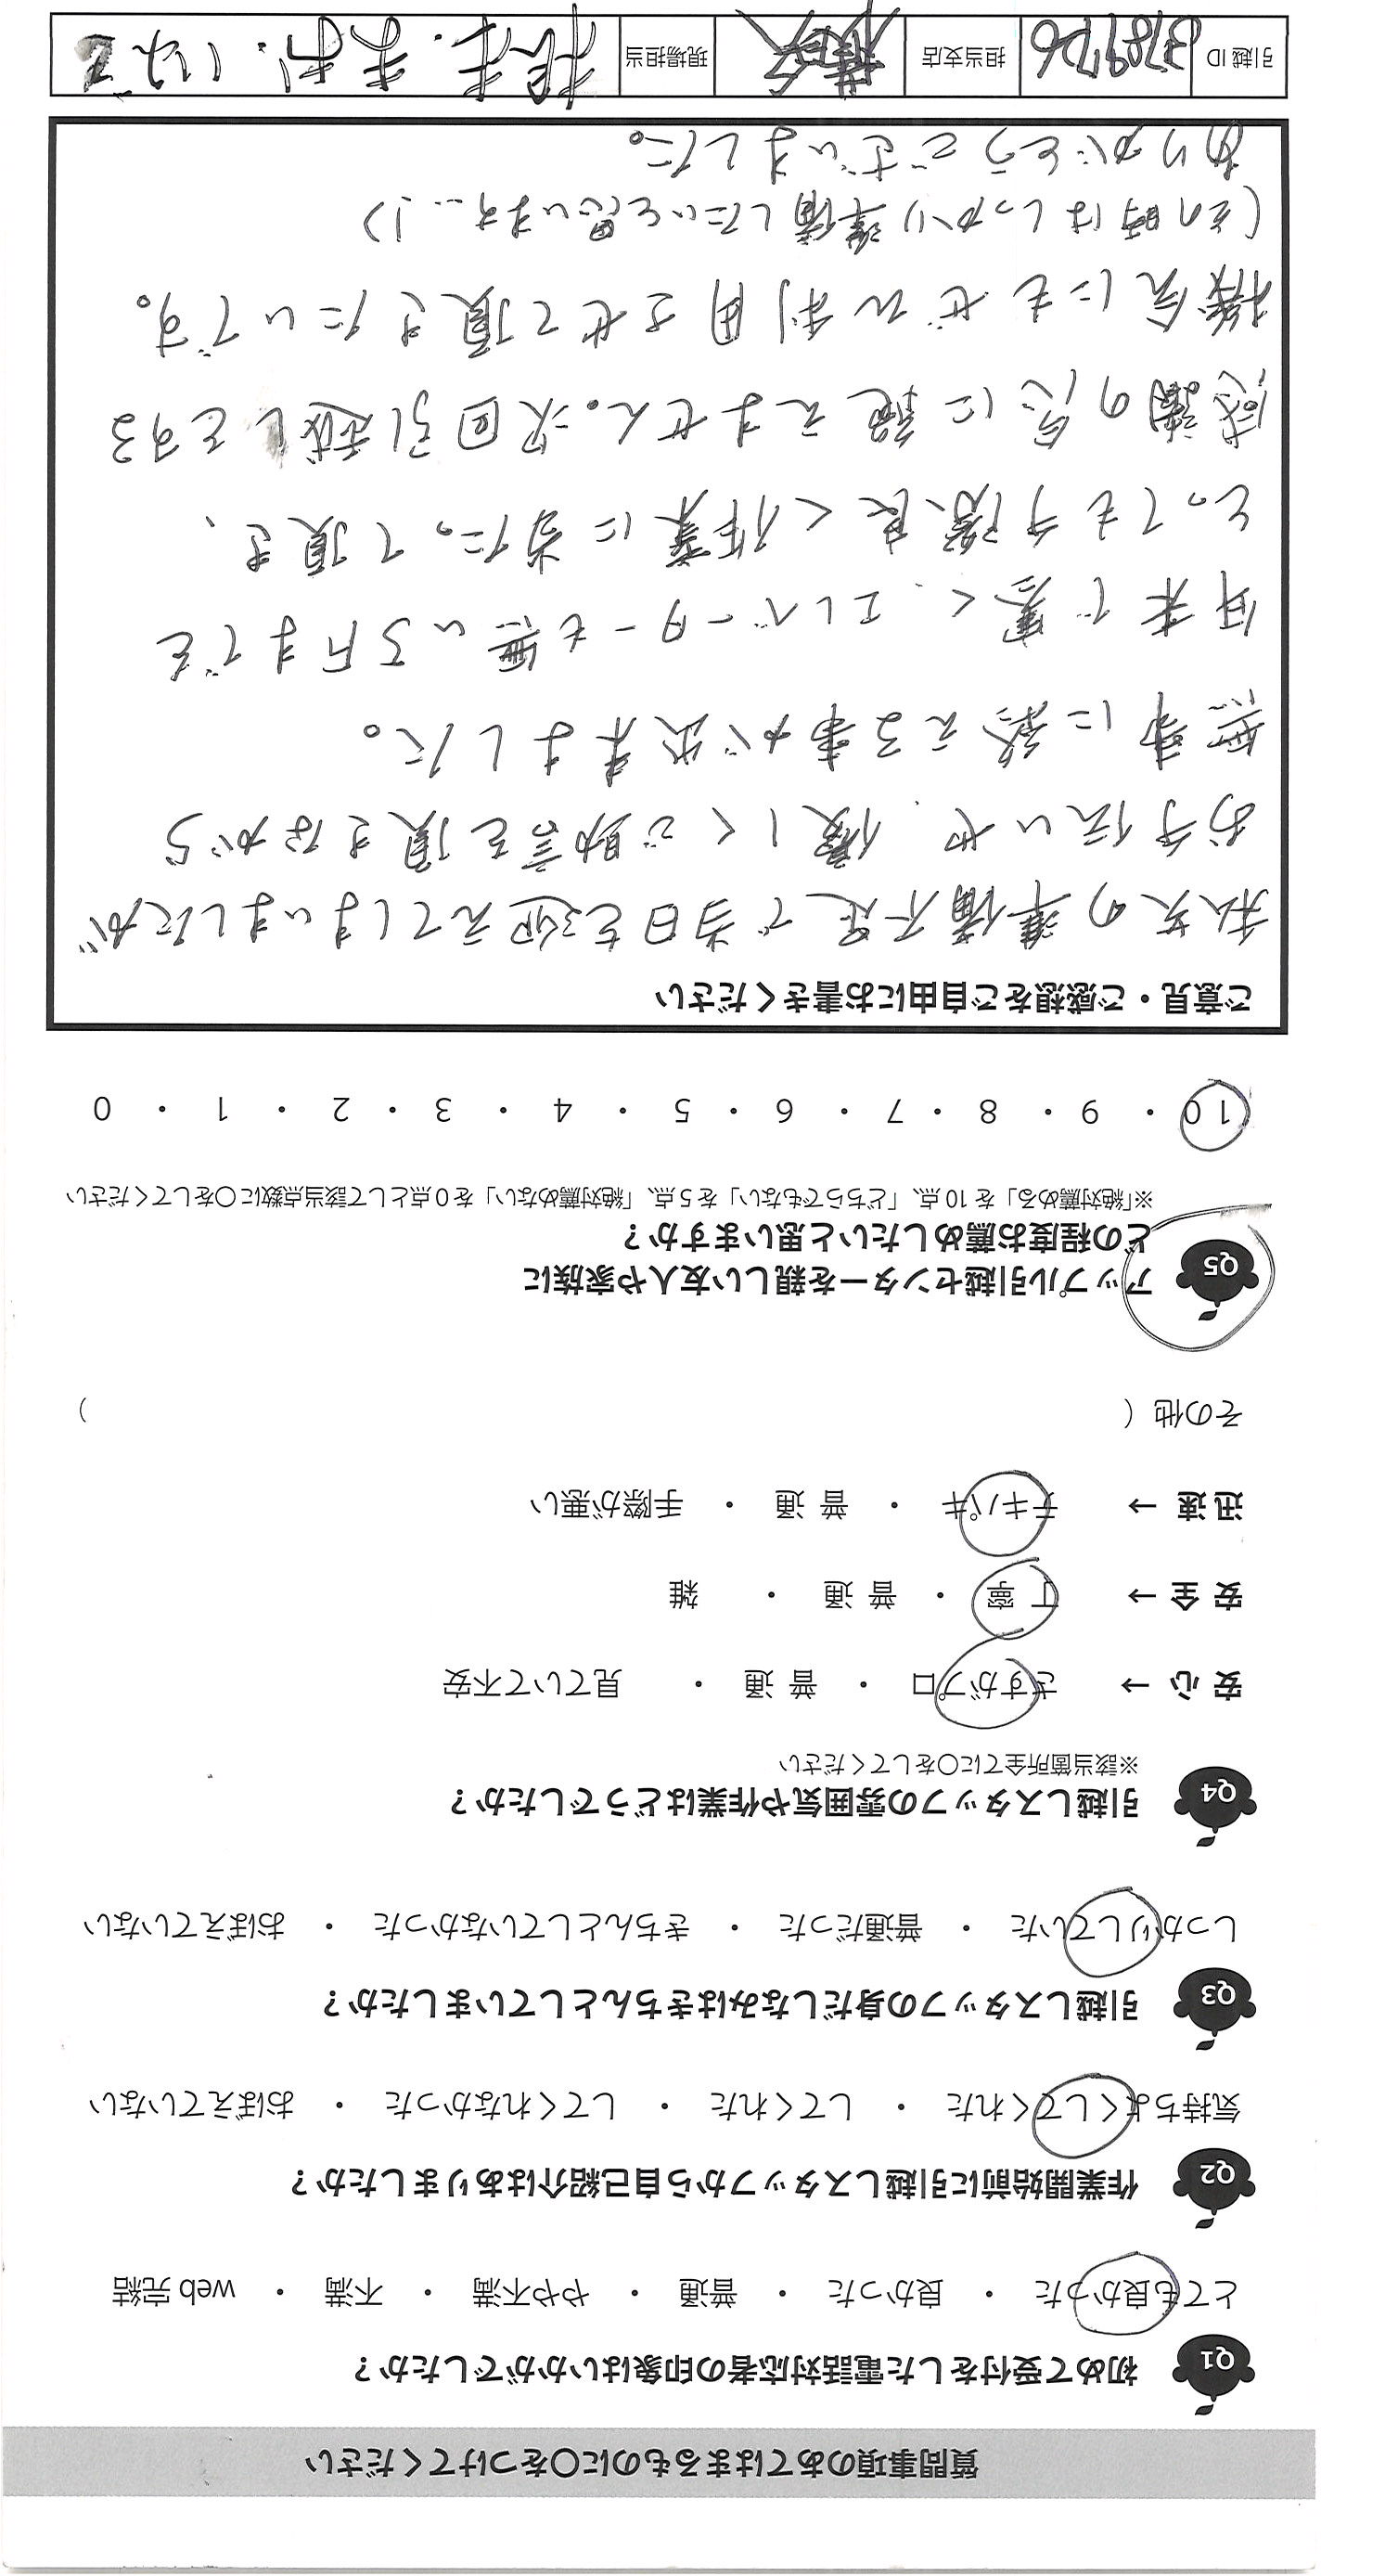 質問事項のあてはまるものに〇をつけてください
Q1 初めて受付をした電話対応者の印象はいかがでしたか？
とても良かった ・ 良かった ・ 普通 ・ やや不満 ・ 不満 ・ web 完結
Q2 作業開始前に引越しスタッフから自己紹介はありましたか？
気持ちよくしてくれた ・ してくれた ・ してくれなかった ・ おぼえていない
Q3 引越しスタッフの身だしなみはきちんとしていましたか？
しっかりしていた ・ 普通だった ・ きちんとしていなかった ・ おぼえていない
Q4 引越しスタッフの雰囲気や作業はどうでしたか？
※該当箇所全てに〇をしてください
安 心 → さすがプロ ・ 普 通 ・ 見ていて不安
安 全 → 丁 寧 ・ 普 通 ・ 雑
迅 速 → テキパキ ・ 普 通 ・ 手際が悪い
その他（ ）
Q5 アップル引越センターを親しい友人や家族に
どの程度お薦めしたいと思いますか？
※「絶対薦める」を 10 点、「どちらでもない」を 5 点、「絶対薦めない」を 0 点として該当点数に〇をしてください
10 ・ 9 ・ 8 ・ 7 ・ 6 ・ 5 ・ 4 ・ 3 ・ 2 ・ 1 ・ 0
ご意見・ご感想をご自由にお書きください
私達の準備不足で当日を迎えてしまいましたが
お手伝いや、優しくご助言を頂きながら
無事に終える事が出来ました。
年末で寒く、エレベーターも無い3Fまでを
とっても手際良く作業に当たって頂き、
感謝の気に絶えません。次回引越しをする
機会にもぜひ利用させて頂きたいです。
(その時はしっかり準備したいと思います…!)
ありがとうございました。
引越 ID 担当支店 現場担当